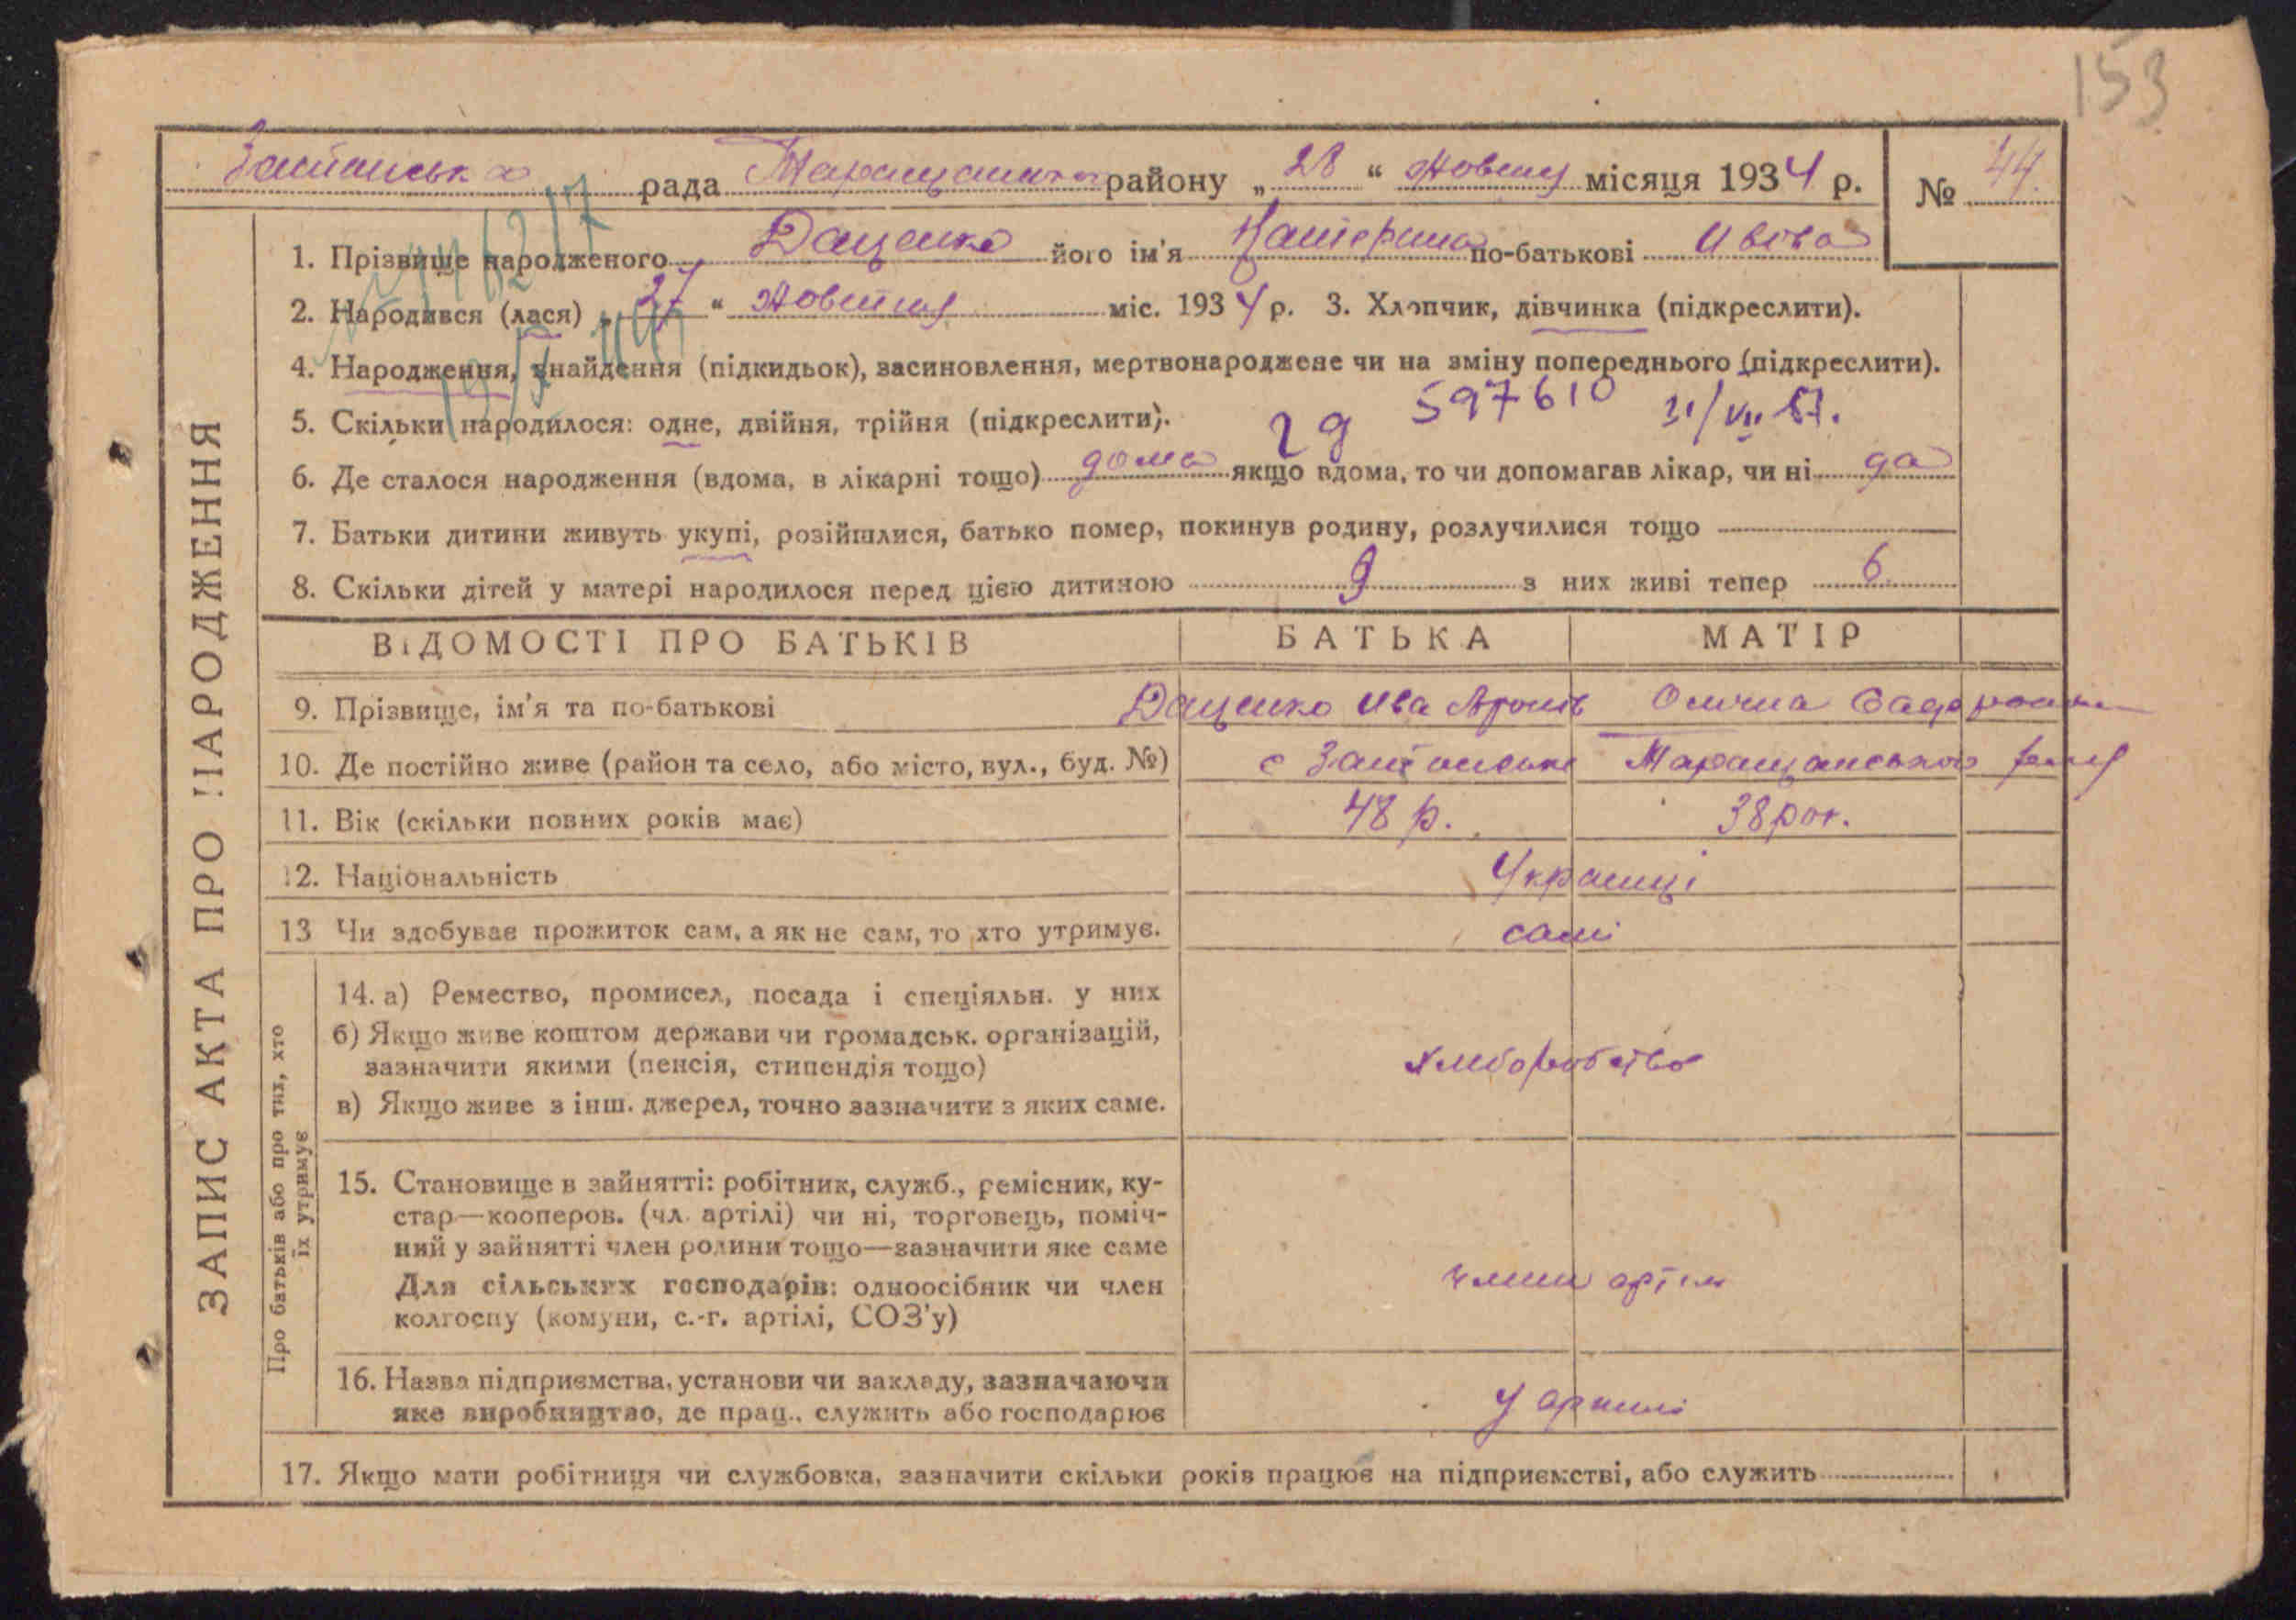 153
рада районy „ 28 “ Жовтня місяця 1934 р. № 44.
ЗАПИС АКТА ПРО НАРОДЖЕННЯ
1. Прізвище народженого Даценко його ім'я Катерина по-батькові Ивова
2. Народився (лася) „ 27 “ Жовтня міс. 1934 р. 3. Хлопчик, дівчинка (підкреслити).
4. Народження, знайдення (підкидьок), засиновлення, мертвонароджене чи на зміну попереднього (підкреслити).
597610 31/VII 57.
5. Скільки народилося: одне, двійня, трійня (підкреслити).
6. Де сталося народження (вдома, в лікарні тощо) дома якщо вдома, то чи допомагав лікар, чи ні да
7. Батьки дитини живуть укупі, розійшлися, батько помер, покинув родину, розлучилися тощо
8. Скільки дітей у матері народилося перед цією дитиною 9 з них живі тепер 6
ВІДОМОСТІ ПРО БАТЬКІВ БАТЬКА МАТІР
9. Прізвище, ім'я та по-батькові Даценко Ива
10. Де постійно живе (район та село, або місто, вул., буд. №) с Таращанського
11. Вік (скільки повних років має) 48 р. 38 рок.
12. Національність Українці
13 Чи здобуває прожиток сам, а як не сам, то хто утримує. самі
Про батьків або про тих, хто
їх утримує
14. а) Ремество, промисел, посада і спеціяльн. у них
б) Якщо живе коштом держави чи громадськ. організацій,
зазначити якими (пенсія, стипендія тощо)
в) Якщо живе з інш. джерел, точно зазначити з яких саме.
хліборобство
15. Становище в зайнятті: робітник, служб., ремісник, ку-
стар—кооперов. (чл. артілі) чи ні, торговець, поміч-
ний у зайнятті член родини тощо—зазначити яке саме
Для сільських господарів: одноосібник чи член
колгоспу (комуни, с.-г. артілі, СОЗ'у)
члени артіли
16. Назва підприємства, установи чи закладу, зазначаючи
яке виробництво, де прац., служить або господарює
у артилі
17. Якщо мати робітниця чи службовка, зазначити скільки років працює на підприємстві, або служить